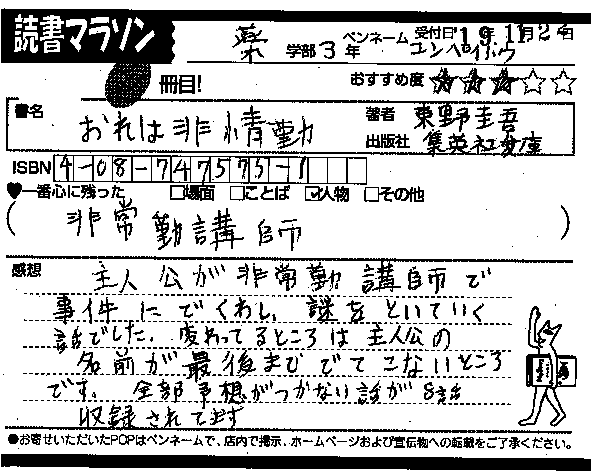 読書マラソン
薬 学部 3 年
ペンネーム コンペイトウ
受付日 '19年11月2日
冊目!
おすすめ度 ★★★☆☆
書名 おれは非情勤
著者 東野圭吾
出版社 集英社文庫
ISBN 4-08-747575-1
♥一番心に残った □場面 □ことば ☑人物 □その他
( 非常勤講師 )
感想 主人公が非常勤講師で
事件にでくわし、謎をといていく
話でした。変わってるところは主人公の
名前が最後まででてこないところ
です。全部予想がつかない話が8話
収録されてます
●お寄せいただいたPOPはペンネームで、店内で掲示、ホームページおよび宣伝物への転載をご了承ください。